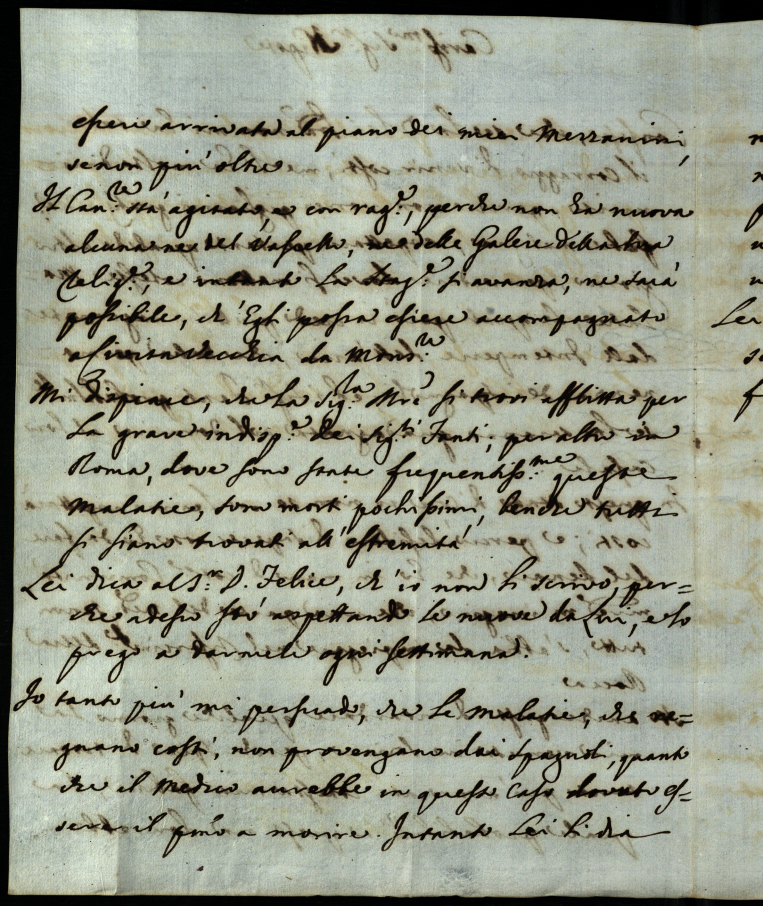 essere arrivata al piano dei miei Mezzanini,
se non più oltre.
Il Can.re stà agitato, e con rag.e, perche non hà nuova
alcuna ne del Vascello, ne delle Galere della
e intanto la Stag.e si avanza, ne sarà
possibile, ch'Egli possa essere accompagnato
a Civita Vecchia da Mons.re
Mi dispiace, che la Sig.ra Mre si trovi afflitta per
la grave indisp.e dei Sig.ri Fanti; per altro in
Roma, dove sono state frequentiss.me queste
malatie, sono morti pochissimi, benche tutti
si siano trovati all'estremità
Lei dica al S.r D. Felice, ch'io non li scrivo, per=
che adesso stò aspettando le nuove da Lui, e lo
prego a darmele ogni settimana.
Io tanto più mi persuado, che le malatie, che re=
gnano costì, non provengano dai Spagnoli, quanto
che il Medico aurebbe in questo caso dovuto es=
sere il pmo a morire. Intanto Lei li dia